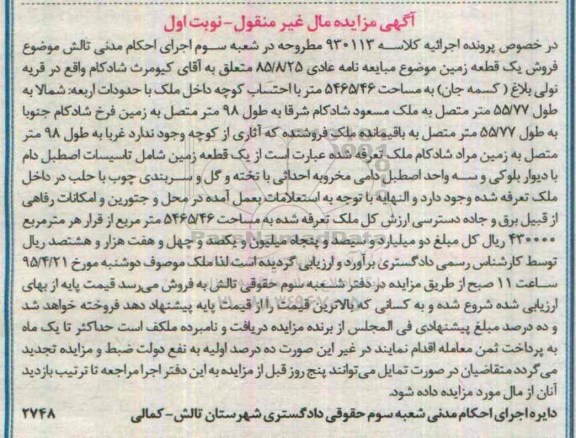 آگهی مزایده مال غیر منقول-نوبت اول
در خصوص پرونده اجرائیه کلاسه ۹۳۰۱۱۳ مطروحه در شعبه سوم اجرای احکام مدنی تالش موضوع
فروش یک قطعه زمین موضوع مبایعه نامه عادی ۸۵/۸/۲۵ متعلق به آقای کیومرث شادکام واقع در قریه
نولی بلاغ ( کسمه جان) به مساحت ۵۴۶۵/۴۶ متر با احتساب کوچه داخل ملک با حدودات اربعه: شمالا به
طول ۵۵/۷۷ متر متصل به ملک مسعود شادکام شرقا به طول ۹۸ متر متصل به زمین فرخ شادکام جنوبا
به طول ۵۵/۷۷ متر متصل به باقیمانده ملک فروشنده که آثاری از کوچه وجود ندارد غربا به طول ۹۸ متر
متصل به زمین مراد شادکام ملک تعرفه شده عبارت است از یک قطعه زمین شامل تاسیسات اصطبل دام
با دیوار بلوکی و سه واحد اصطبل دامی مخروبه احداثی با تخته و گل و سربندی چوب با حلب در داخل
ملک تعرفه شده وجود دارد و النهایه با توجه به استعلامات بعمل آمده در محل و جتورین و امکانات رفاهی
از قبیل برق و جاده دسترسی ارزش کل ملک تعرفه شده به مساحت ۵۴۶۵/۴۶ متر مربع از قرار هر مترمربع
۴۳۰۰۰۰ ریال کل مبلغ دو میلیارد و سیصد و پنجاه میلیون و یکصد و چهل و هفت هزار و هشتصد ریال
توسط کارشناس رسمی دادگستری برآورد و ارزیابی گردیده است لذا ملک موصوف دوشنبه مورخ ۹۵/۴/۲۱
ساعت ۱۱ صبح از طریق مزایده در دفتر شعبه سوم حقوقی تالش به فروش می‌رسد قیمت پایه از بهای
ارزیابی شده شروع شده و به کسانی که بالاترین قیمت را از قیمت پایه پیشنهاد دهد فروخته خواهد شد
و ده درصد مبلغ پیشنهادی فی المجلس از برنده مزایده دریافت و نامبرده ملکف است حداکثر تا یک ماه
به پرداخت ثمن معامله اقدام نمایند در غیر این صورت ده درصد اولیه به نفع دولت ضبط و مزایده تجدید
می‌گردد متقاضیان در صورت تمایل می‌توانند پنج روز قبل از مزایده به این دفتر اجرا مراجعه تا ترتیب بازدید
آنان از مال مورد مزایده داده شود.
دایره اجرای احکام مدنی شعبه سوم حقوقی دادگستری شهرستان تالش- کمالی ۲۷۴۸